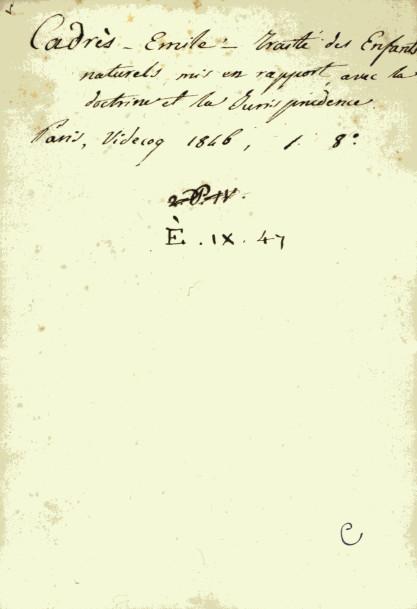 Cadrès - Emile - Traité des Enfants
naturels, mis en rapport, avec la
doctrine et la Jurisprudence
Paris, Videcoq 1846, 1. 8°.
È. IX. 47
C